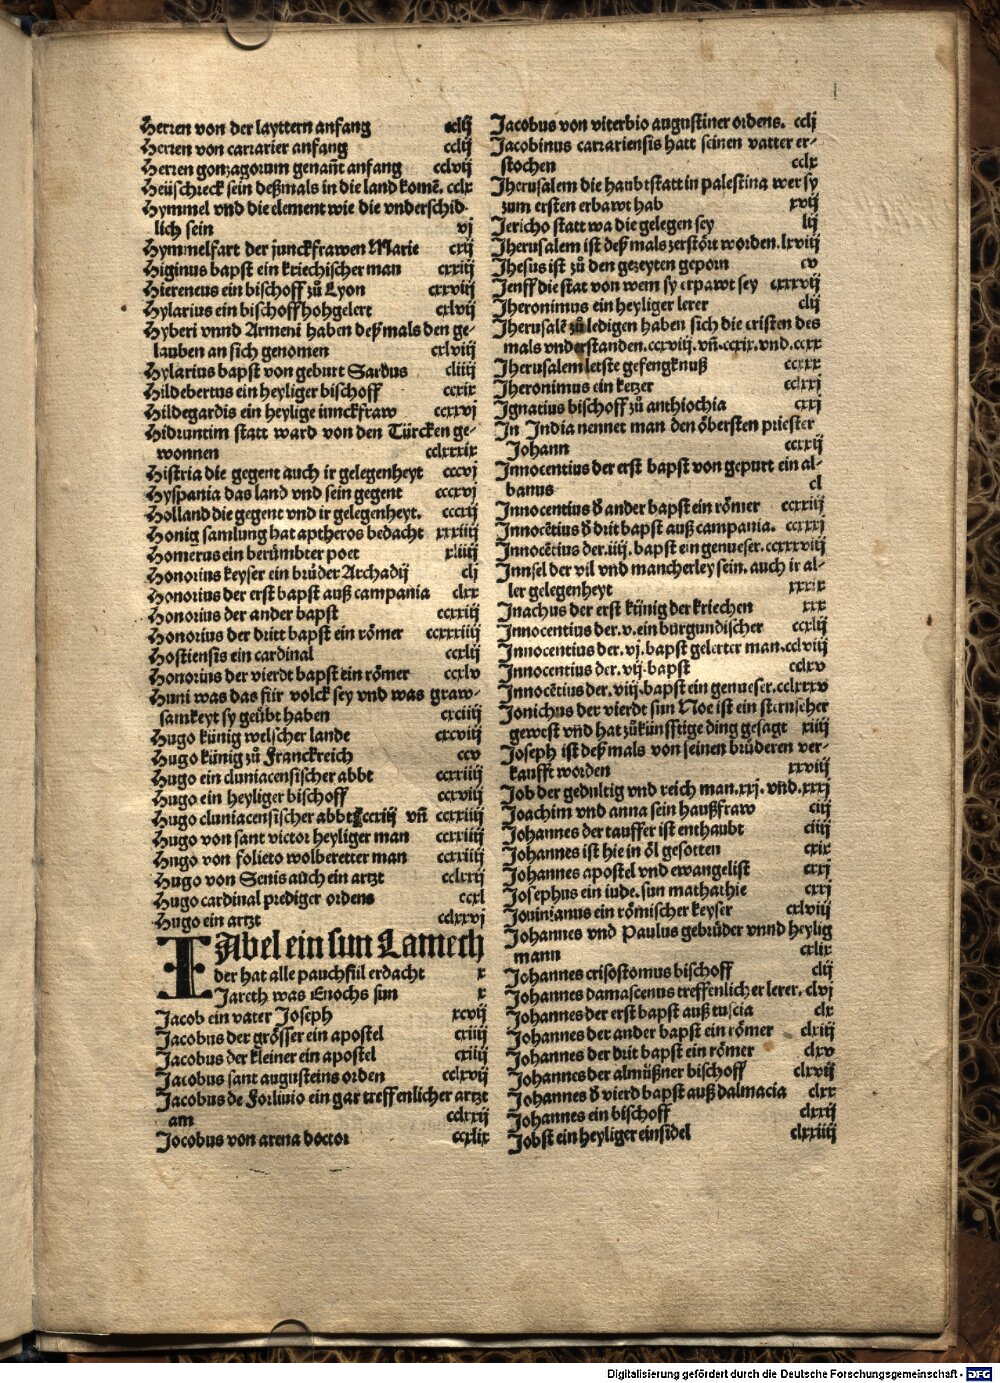 Herren von der layttern anfang cclij
Herren von carrarier anfang cclij
Herren gonzagorum genañt anfang cclvij
Heüschreck sein deßmals in die land komẽ. cclx
Hymmel vnd die element wie die vnderschid-
lich sein vj
Hymmelfart der junckfrawen Marie cxij
Higinus bapst ein kriechischer man cxxiij
Hiereneus ein bischoff zů Lyon cxxviij
Hylarius ein bischoff hohgelert cxlvij
Hyberi vnnd Armeni haben deßmals den ge-
lauben an sich genomen cxlviij
Hylarius bapst von geburt Sardus cliiij
Hildebertus ein heyliger bischoff ccxix
Hildegardis ein heylige iunckfraw ccxxvj
Hidruntim statt ward von den Türcken ge-
wonnen cclxxxix
Histria die gegent auch ir gelegenheyt cccvj
Hyspania das land vnd sein gegent cccxvj
Holland die gegent vnd ir gelegenheyt. cccxij
Honig samlung hat aptheros bedacht xxxiiij
Homerus ein berümbter poet xliiij
Honorius keyser ein brůder Archadij clj
Honorius der erst bapst auß campania clxx
Honorius der ander bapst ccxxiij
Honorius der dritt bapst ein römer ccxxxiiij
Hostiensis ein cardinal ccxlij
Honorius der vierdt bapst ein römer ccxlv
Huni was das für volck sey vnd was graw-
samkeyt sy geübt haben cxciiij
Hugo künig welscher lande cxcviij
Hugo künig zů Franckreich ccv
Hugo ein cluniacensischer abbt ccxxiiij
Hugo ein heyliger bischoff ccxviij
Hugo cluniacensischer abbt ccxiij vñ ccxxiiij
Hugo von sant victor heyliger man ccxxiiij
Hugo von folieto wolberetter man ccxxiiij
Hugo von Senis auch ein artzt cclxxij
Hugo cardinal prediger ordens ccxl
Hugo ein artzt cclxxvj
IAbel ein sun Lamech
der hat alle pauchfiil erdacht x
Jareth was Enochs sun x
Jacob ein vater Joseph xcvij
Jacobus der grösser ein apostel cxiiij
Jacobus der kleiner ein apostel cxiiij
Jacobus sant augusteins orden cclxvij
Jacobus de Forliuio ein gar treffenlicher artzt
am cclxxij
Jocobus von arena doctor ccxlix
Jacobus von viterbio augustiner ordens. cclj
Jacobinus carrariensis hatt seinen vatter er-
stochen cclx
Jherusalem die haubtstatt in palestina wer sy
zum ersten erbawt hab xvij
Jericho statt wa die gelegen sey lij
Jherusalem ist deß mals zerstört worden. lxviij
Jhesus ist zů den gezeyten geporn cv
Jenff die stat von wem sy erpawt sey cxxxvij
Jheronimus ein heyliger lerer clij
Jherusalẽ zů ledigen haben sich die cristen des
mals vnderstanden. ccxviij. vñ. ccxix. vnd. ccxx
Jherusalem letste gefengknuß ccxxx
Jheronimus ein ketzer cclxxj
Ignatius bischoff zů anthiochia cxxj
In India nennet man den öbersten priester
Johann ccxxij
Innocentius der erst bapst von gepurt ein al-
banus cl
Innocentius ð ander bapst ein römer ccxxiij
Innocẽtius ð drit bapst auß campania. ccxxxj
Innocẽtius der. iiij. bapst ein genueser. ccxxxviij
Innsel der vil vnd mancherley sein. auch ir al-
ler gelegenheyt xxxix
Inachus der erst künig der kriechen xxx
Innocentius der. v. ein burgundischer ccxlij
Innocentius der. vj. bapst gelerter man. cclviij
Innocentius der. vij. bapst cclxv
Innocẽtius der. viij. bapst ein genueser. cclxxxv
Jonichus der vierdt sun Noe ist ein sternseher
gewest vnd hat zůkünfftige ding gesagt xiiij
Joseph ist deß mals von seinen brüderen ver-
kaufft worden xxviij
Job der gedultig vnd reich man. xxj. vnd. xxxj
Joachim vnd anna sein haußfraw ciij
Johannes der tauffer ist enthaubt ciiij
Johannes ist hie in öl gesotten cxix
Johannes apostel vnd ewangelist cxxj
Josephus ein iude. sun mathathie cxxj
Jouinianus ein römischer keyser cxlviij
Johannes vnd Paulus gebrüder vnnd heylig
mann cxlix
Johannes crisostomus bischoff clij
Johannes damascenus treffenlicher lerer. clvj
Johannes der erst bapst auß tuscia clx
Johannes der ander bapst ein römer clxiij
Johannes der drit bapst ein römer clxv
Johannes der almüßner bischoff clxvij
Johannes ð vierd bapst auß dalmacia clxx
Johannes ein bischoff clxxij
Jobst ein heyliger einsidel clxxiiij
Digitalisierung gefördert durch die Deutsche Forschungsgemeinschaft - DFG